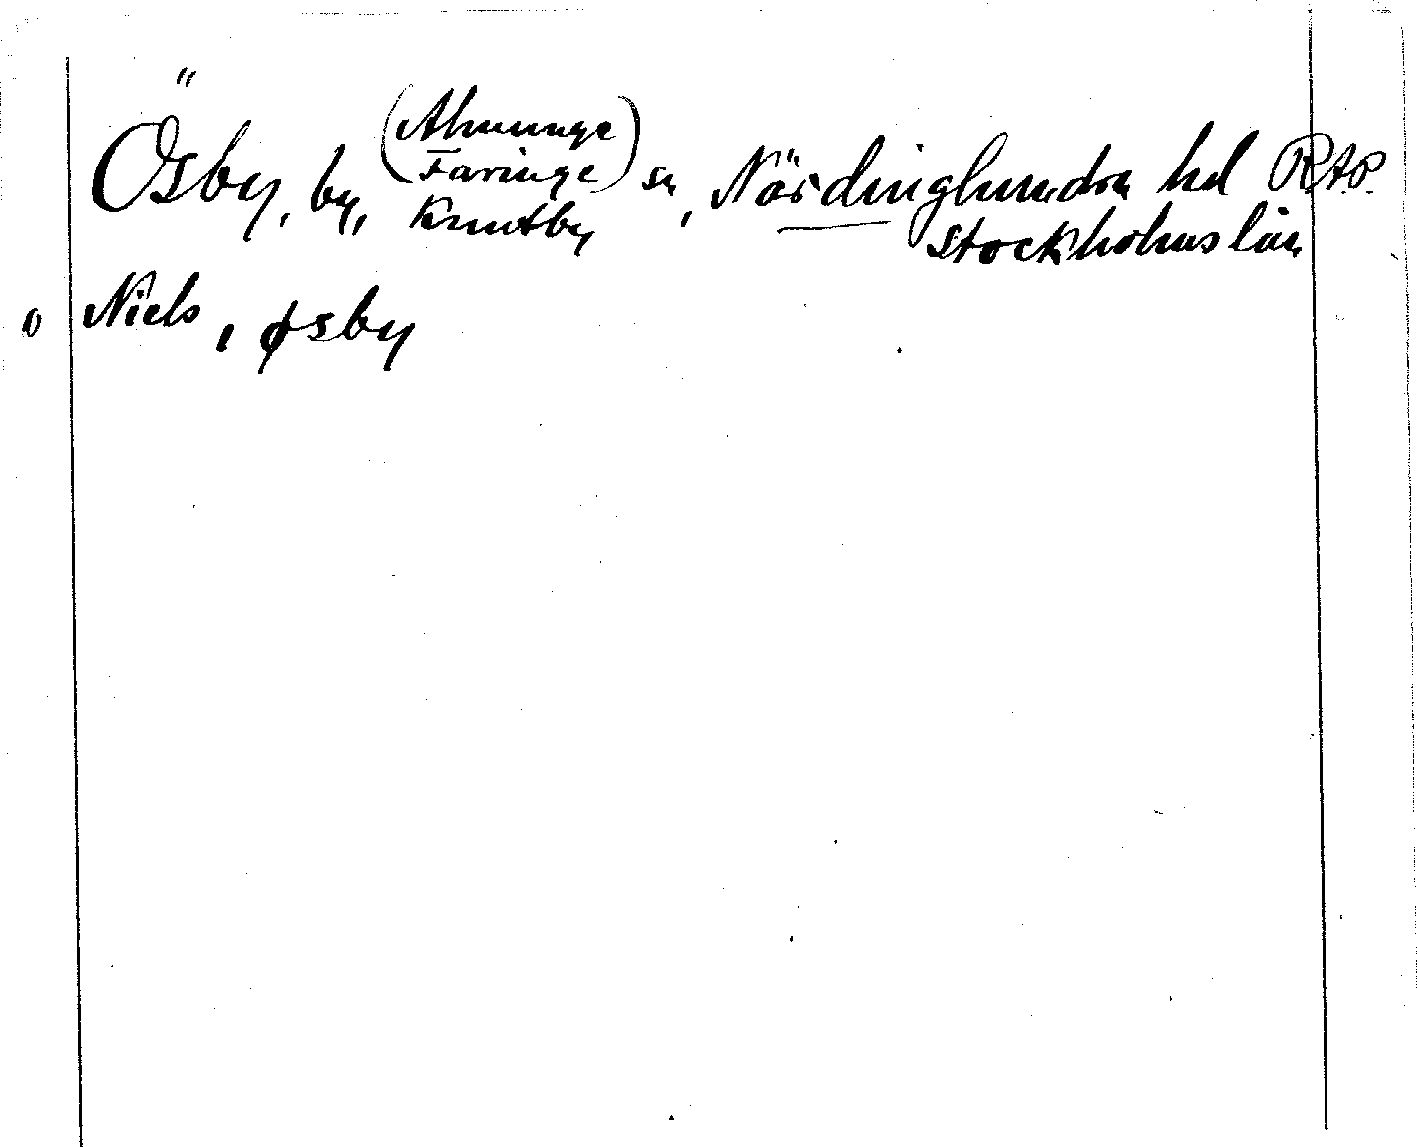 Ösby, by, (Almunge Faringe) Knutby sn, Närdinghundra hd RAP.
Stockholms län
o Niels, øsby